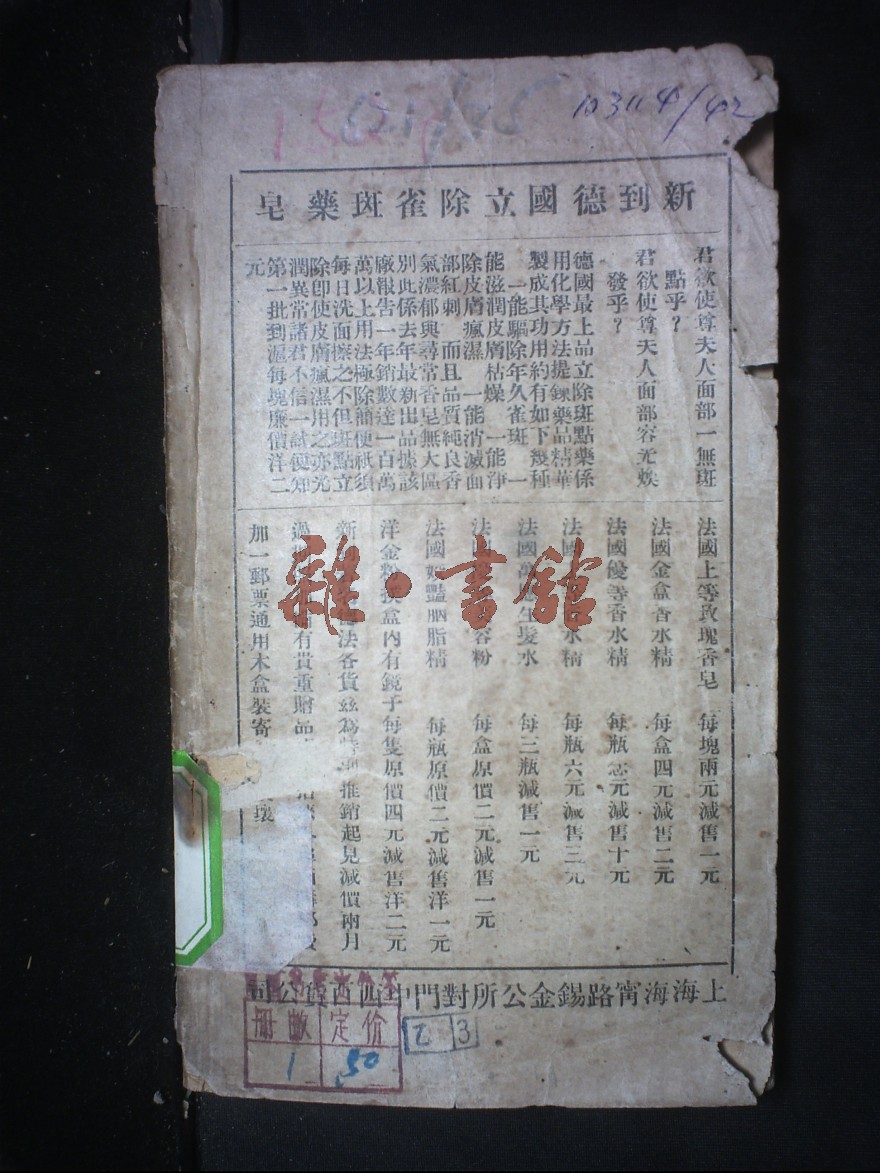 103114/42
新到德國立除雀斑藥皂
君欲使尊夫人面部一無斑
點乎？
君欲使尊夫人面部容光焕
發乎？
德國最上品立除斑點藥係
用化學方法提鍊藥品精華
製成其功用約有如下幾種
一能驅除年久雀斑 一
能滋潤皮膚枯燥 一能净
除皮膚瘋濕 一能消滅面
部紅刺 而且品質純良香
氣濃郁與尋常香皂無大區
別此係去年最新出品據該
廠報告一年銷數達一百萬
萬以上用法極除簡便祇須
每日洗面擦之不但斑點立
除即使皮膚瘋濕用之亦光
潤異常諸君不信一試便知
第一批到滬每塊廉價洋二
元
法國上等玫瑰香皂 每塊兩元減售一元
法國金盒香水精 每盒四元減售二元
法國優等香水精 每瓶念元減售十元
法國 水精 每瓶六元減售三元
法國 生髮水 每三瓶減售一元
法 容粉 每盒原價二元減售一元
法國 豔胭脂精 每瓶原價二元減售洋一元
洋金粉 盒內有鏡子每隻原價四元減售洋二元
新 法各貨茲為 推銷起見減價兩月
過 有貴重贈品
加一郵票通用木盒裝寄 壞
上海海甯路錫金公所對門中西 公司
雜·書館
冊數 定价
1 50
乙 3